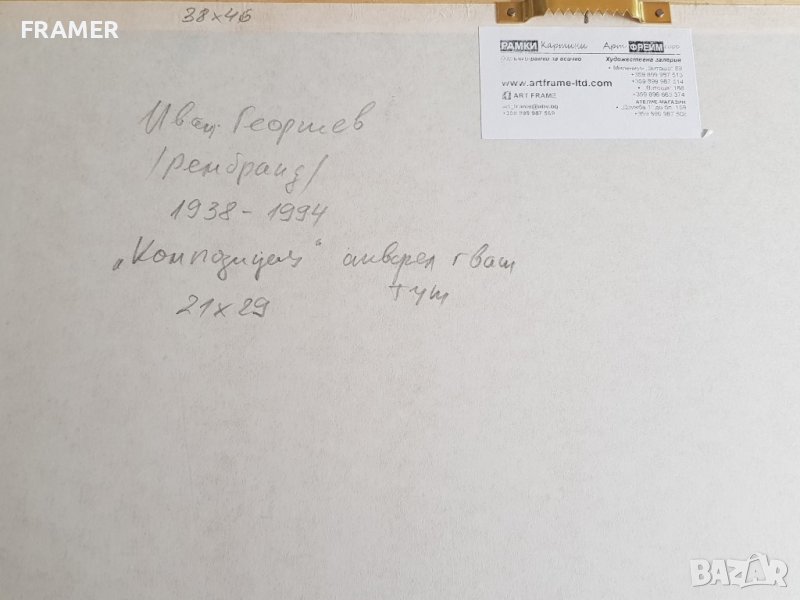 FRAMER
38x46
РАМКИ Картини Арт ФРЕЙМ
рамки за всичко Художествена галерия
www.artframe-ltd.com
ART FRAME
АТЕЛИЕ-МАГАЗИН
Иван Георгиев
/Рембранд/
1938-1994
„Композиция" акварел гваш
туш
21x29
BAZAR